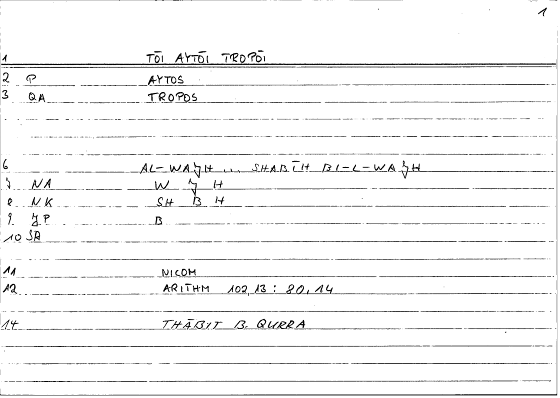 1
1 TŌI AYTŌI TROPŌI
2 P AYTOS
3 QA TROPOS
6 AL-WAJH ... SHABĪH BI-L-WAJH
7 NA W J H
8 NK SH B H
9 JP B
10 SA
11 NICOM
12 ARITHM 102,13 : 80,14
14 THĀBIT B. QURRA